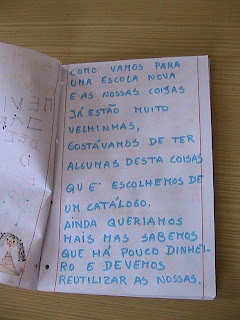 COMO VAMOS PARA
UMA ESCOLA NOVA
E AS NOSSAS COISAS
JÁ ESTÃO MUITO
VELHINHAS,
GOSTÁVAMOS DE TER
ALGUMAS DESTA COISAS
QUE ESCOLHEMOS DE
UM CATÁLOGO.
AINDA QUERIAMOS
MAIS MAS SABEMOS
QUE HÁ POUCO DINHEI-
RO E DEVEMOS
REUTILIZAR AS NOSSAS.